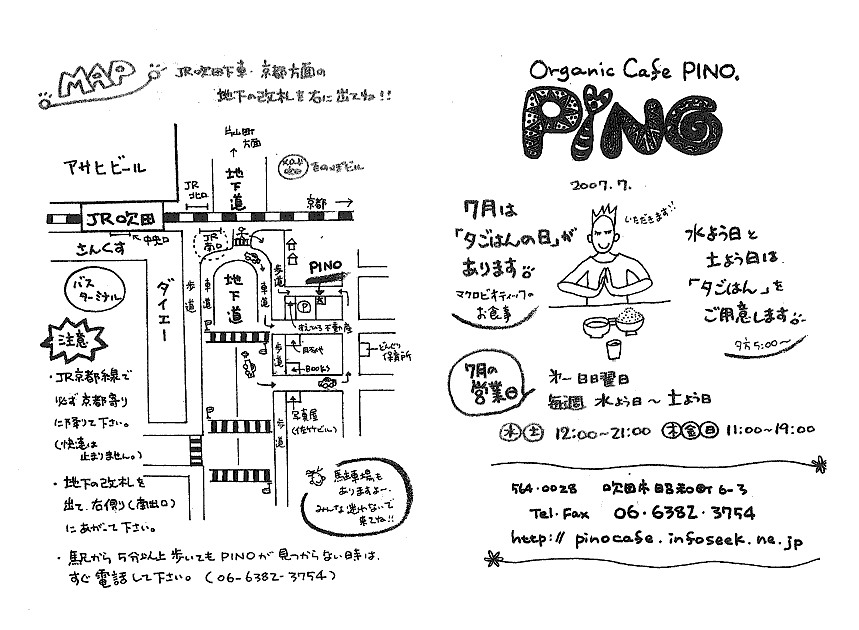 MAP
JR吹田下車・京都方面の
地下の改札を右に出てね!!
片山町
方面
アサヒビール
地下道
JR
北口
きのめビル
京都
JR吹田
中央口
JR
南口
さんくす
バス
ターミナル
ダイエー
歩道
車道
地下道
車道
歩道
PINO
P
すえひろ不動産
歩道
BOOKS
どんぐり
保育所
写真屋
(佐竹ビル)
歩道
注意
・JR京都線で
必ず京都寄り
に降りて下さい。
(快速は
止まりません。)
・地下の改札を
出て、右側り(南出口)
にあがって下さい。
駐車場も
ありますよー。
みんな迷わないで
来てね!!
・駅から5分以上歩いてもPINOが見つからない時は、
すぐ電話して下さい。(06-6382-3754)
Organic Cafe PINO.
PiNO
2007.7.
7月は
「夕ごはんの日」が
あります
マクロビオティックの
お食事
いただきます!!
水よう日と
土よう日は
「夕ごはん」を
ご用意します
夕方5:00〜
7月の
営業日
第一日曜日
毎週 水よう日〜土よう日
水土 12:00〜21:00 木金日 11:00〜19:00
564・0028 吹田市昭和町6-3
Tel・Fax 06・6382・3754
http:// pinocafe.infoseek.ne.jp